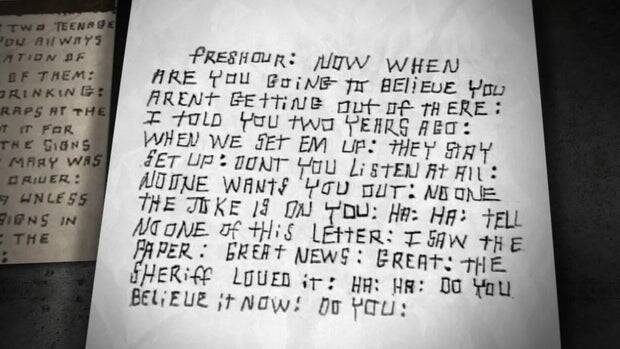 TWO TEENAGE
YOU AllWAYS
ATION OF
OF THEM:
DRINKING:
RAPS AT THE
IT FOR
THE SIGNS
MARY WAS
DRIVER:
UNLESS
SIGNS IN
: THE
FRESHOUR: NOW WHEN
ARE YOU GOING TO BELIEVE YOU
ARENT GETTING OUT OF THERE:
I TOLD YOU TWO YEARS AGO:
WHEN WE SET EM UP: THEY STAY
SET UP: DONT YOU LISTEN AT All:
NOONE WANTS YOU OUT: NOONE
THE JOKE IS ON YOU: HA: HA: TELL
NOONE OF THIS LETTER: I SAW THE
PAPER: GREAT NEWS: GREAT: THE
SHERIFF LOVED IT: HA: HA: DO YOU
BELIEVE IT NOW: DO YOU: